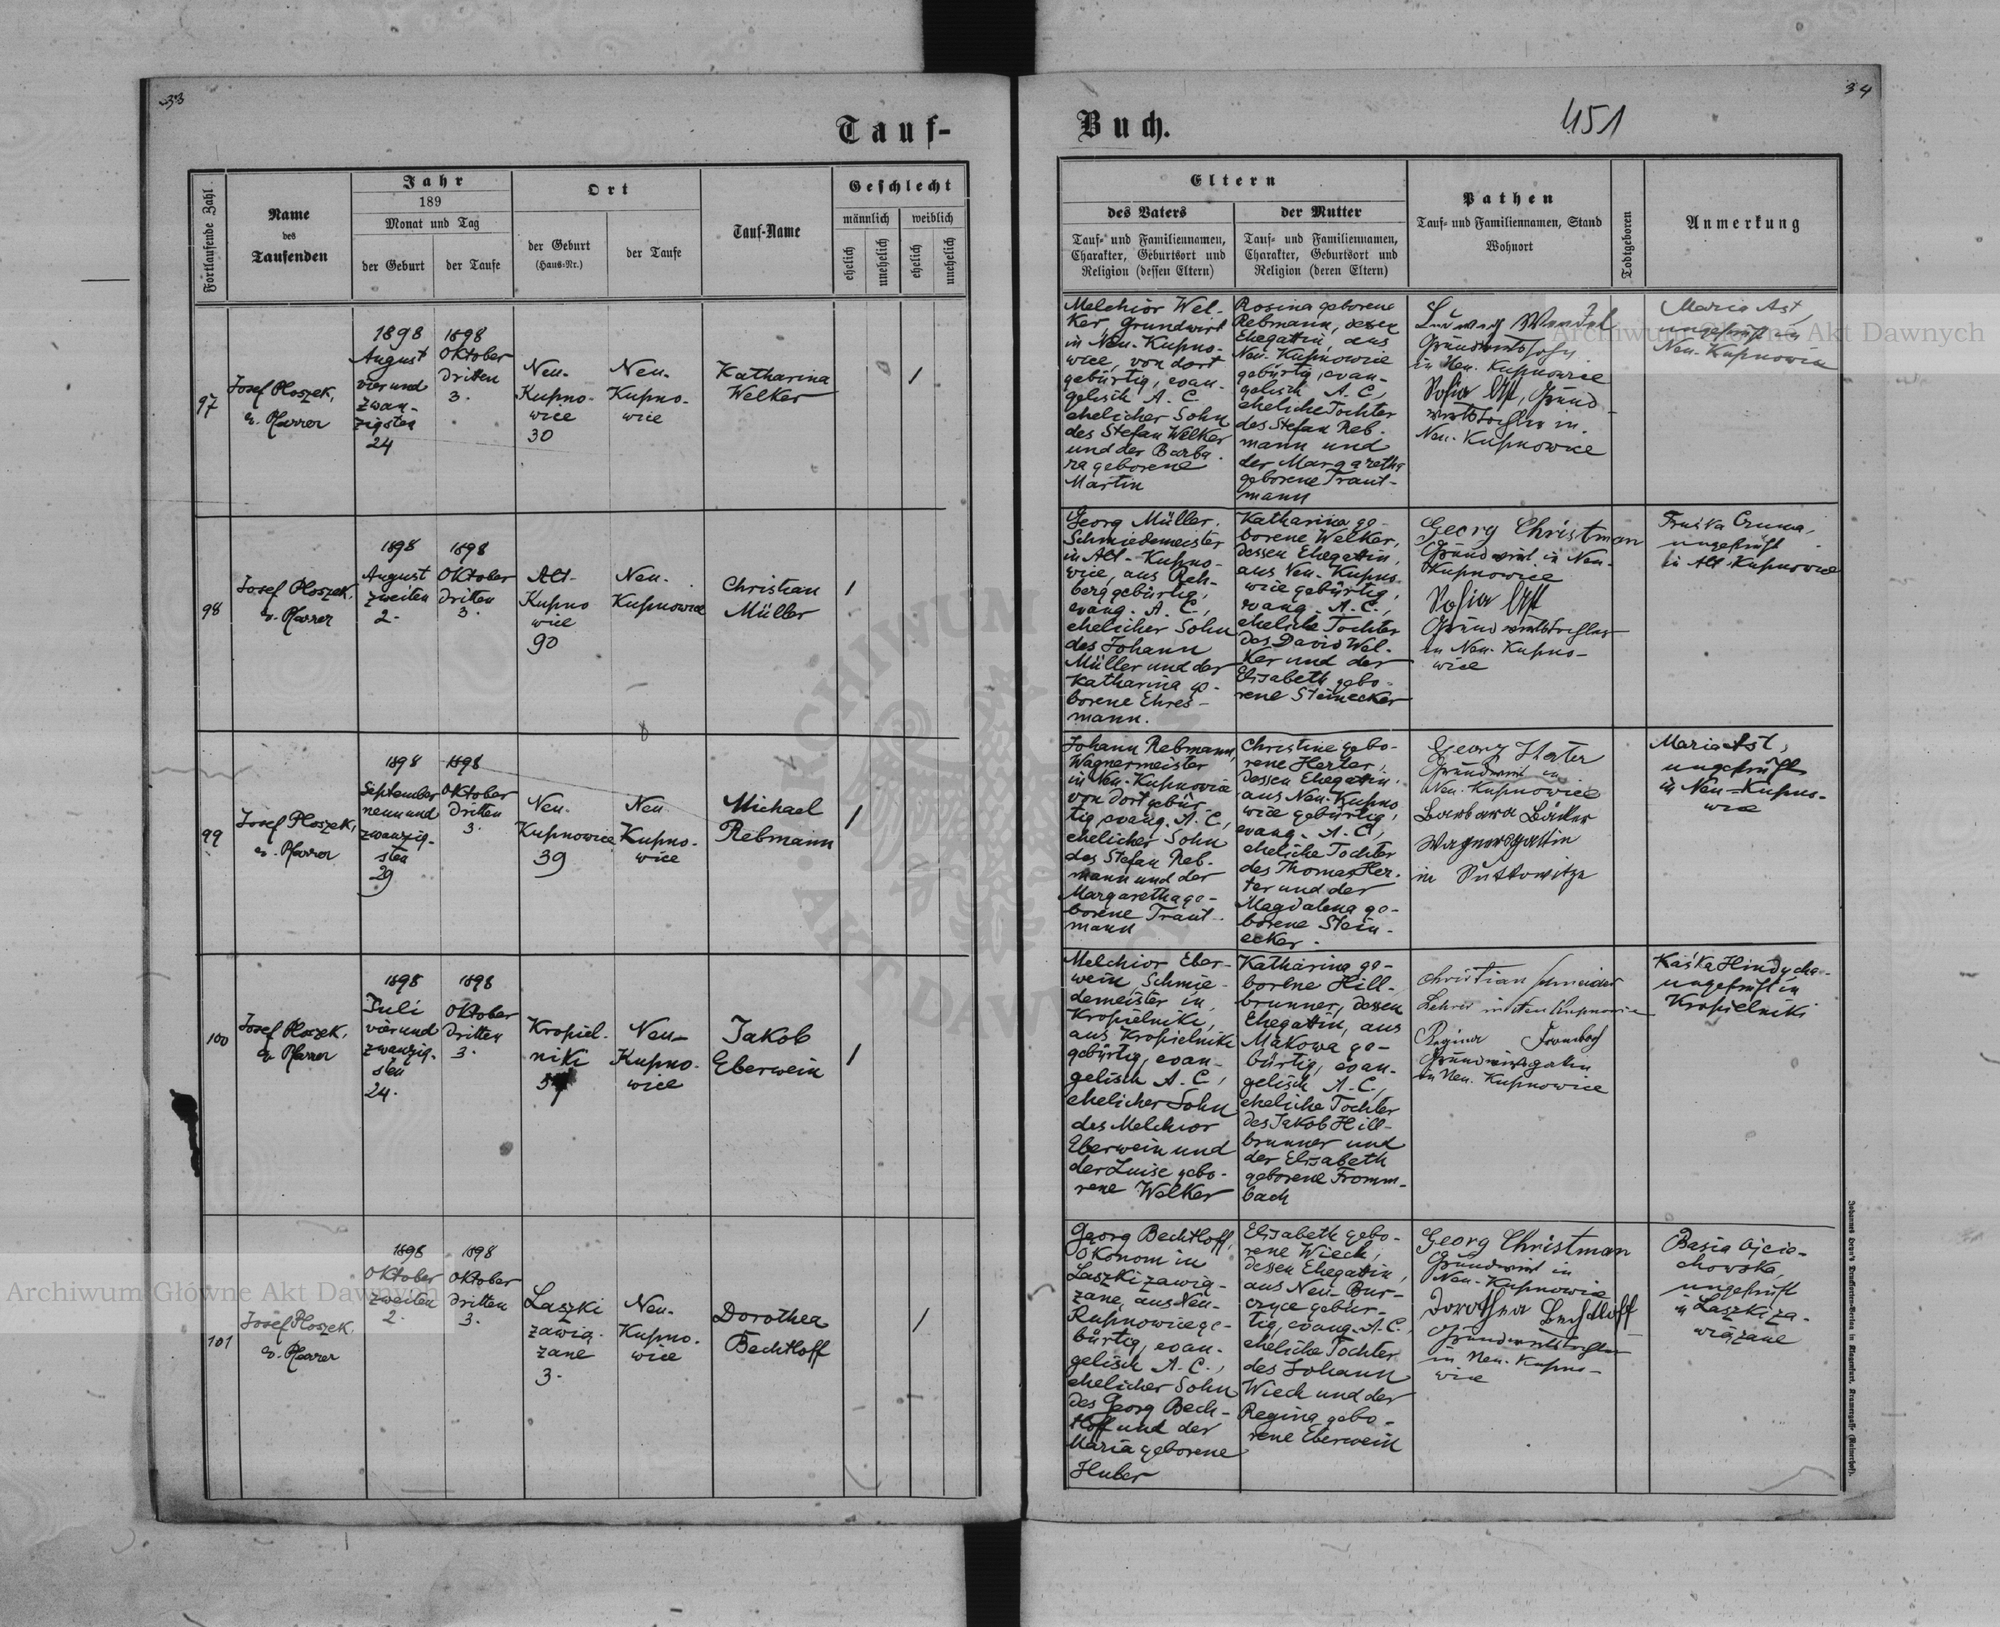 33
34
451
Tauf-
Buch.
Fortlaufende Zahl
Name
des
Taufenden
Jahr
189
Monat und Tag
der Geburt
der Taufe
Ort
der Geburt
(Haus-Nr.)
der Taufe
Tauf-Name
Geschlecht
männlich
weiblich
ehelich
unehelich
ehelich
unehelich
Eltern
des Vaters
Tauf- und Familiennamen,
Charakter, Geburtsort und
Religion (dessen Eltern)
der Mutter
Tauf- und Familiennamen,
Charakter, Geburtsort und
Religion (deren Eltern)
Pathen
Tauf- und Familiennamen, Stand
Wohnort
Todtgeboren
Anmerkung
97
Josef Ploszek,
ev. Pfarrer
1898
August
vier und
zwan-
zigsten
24
1898
Oktober
dritten
3.
Neu-
Kupno-
wice
30
Neu-
Kupno-
wice
Katharina
Welker
1
Melchior Wel-
ker Grundwirt
in Neu-Kupno-
wice, von dort
gebürtig, evan-
gelisch A. C.
ehelicher Sohn
des Stefan Welker
und der Barba-
ra geborene
Martin
Rosina geborene
Rebmann, dessen
Ehegattin, aus
Neu-Kupnowice
gebürtig, evan-
gelisch A. C.,
eheliche Tochter
des Stefan Reb-
mann und
der Margaretha
geborene Traut-
mann
Ludwig Wendel
Grundwirtssohn
in Neu-Kupnowice
Sofia Ast, Grund-
wirtstochter in
Neu-Kupnowice
Maria Ast,
ungeprüft in
Neu-Kupnowice
98
Josef Ploszek,
ev. Pfarrer
1898
August
zweiten
2.
1898
Oktober
dritten
3.
Alt-
Kupno
wice
90
Neu-
Kupnowice
Christian
Müller
1
Georg Müller,
Schmiedemeister
in Alt-Kupno-
wice, aus Reh-
berg gebürtig,
evang. A. C.,
ehelicher Sohn
des Johann
Müller und der
Katharina ge-
borene Ehres-
mann.
Katharina ge-
borene Welker,
dessen Ehegattin,
aus Neu-Kupno
wice gebürtig,
evang. A. C.,
eheliche Tochter
des David Wel-
ker und der
Elisabeth gebo-
rene Steinecker
Georg Christman
Grundwirt in Neu-
Kupnowice
Sofia Ast
Grundwirtstochter
in Neu-Kupno-
wice
ungeprüft
in Alt-Kupnowice
99
Josef Ploszek,
ev. Pfarrer
1898
September
neun und
zwanzig-
sten
29
1898
Oktober
dritten
3.
Neu-
Kupnowice
39
Neu
Kupno-
wice
Michael
Rebmann
1
Johann Rebmann,
Wagnermeister
in Neu-Kupnowice
von dort gebür-
tig, evang. A. C.,
ehelicher Sohn
des Stefan Reb-
mann und der
Margaretha ge-
borene Traut-
mann
Christine gebo-
rene Herter,
dessen Ehegattin,
aus Neu-Kupno
wice gebürtig,
evang. A. C.,
eheliche Tochter
des Thomas Her-
ter und der
Magdalena ge-
borene Stein-
ecker.
Georg Herter
Grundwirt in
Neu-Kupnowice
Barbara Bäcker
Wagnersgattin
in
Maria Ast,
ungeprüft
in Neu-Kupno-
wice
100
Josef Ploszek,
ev. Pfarrer
1898
Juli
vier und
zwanzig-
sten
24.
1898
Oktober
dritten
3.
Kropiel-
niki
Neu-
Kupno-
wice
Jakob
Eberwein
1
Melchior Eber-
wein, Schmie-
demeister in
Kropielniki,
aus Kropielniki
gebürtig, evan-
gelisch A. C.,
ehelicher Sohn
des Melchior
Eberwein und
der Luise gebo-
rene Welker
Katharina ge-
borene Hill-
brunner, dessen
Ehegattin, aus
Makowa ge-
bürtig, evan-
gelisch A. C.,
eheliche Tochter
des Jakob Hill-
brunner und
der Elisabeth
geborene Fromm-
bach
Christian Schneider
Lehrer in Neu Kupnowice
Regina Frombach
Grundwirtsgattin
in Neu-Kupnowice
Kaśka Hindycha-
ungeprüft in
Kropielniki
101
Josef Ploszek,
ev. Pfarrer
1898
Oktober
zweiten
2.
1898
Oktober
dritten
3.
Laszki
zawią-
zane
3.
Neu-
Kupno-
wice
Dorothea
Bechtloff
1
Georg Bechtloff,
Ökonom in
Laszki zawią-
zane, aus Neu-
Kupnowice ge-
bürtig, evan-
gelisch A. C.,
ehelicher Sohn
des Georg Bech-
tloff und der
Maria geborene
Huber
Elisabeth gebo-
rene Wiech,
dessen Ehegattin,
aus Neu-Bur-
czyce gebür-
tig, evang. A. C.,
eheliche Tochter
des Johann
Wiech und der
Regina gebo-
rene Eberwein
Georg Christman
Grundwirt in
Neu-Kupnowice
Dorothea Bechtloff
Grundwirtstochter
in Neu-Kupno-
wice
Basia Ojcio-
chowska
ungeprüft
in Laszki za-
wiązane
Archiwum Główne Akt Dawnych
Archiwum Główne Akt Dawnych